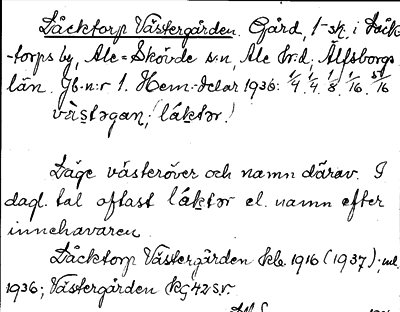 Läcktorp Västergården. Gård, 1-sk. i Läck-
-torps by, Ale=Skövde s:n, Ale hr.d, Älfsborgs
län. Jb.n:r 1. Hem.delar 1936: 1/4. 1/4. 1/8. 1/16. 5/16
västəgan, (láktər)
Läge västeröver och namn därav. I
dagl. tal oftast láktər el. namn efter
innehavaren.
Läcktorp Västergården Kb. 1916 (1937);
1936; Västergården KG 42 s.v.